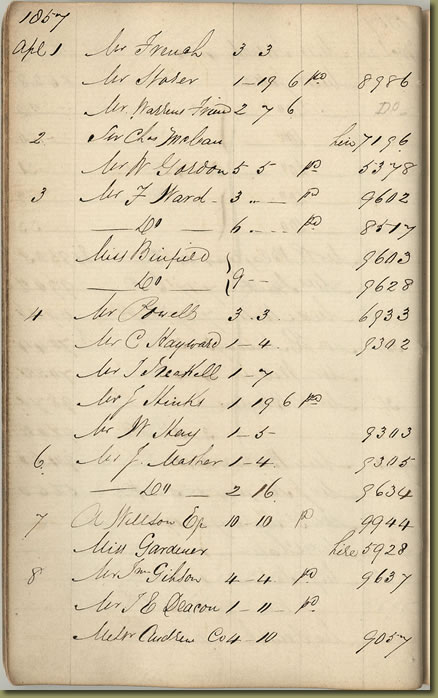 1857
Apl 1 Mr French 3 3
Mr Hoter 1 - 19 6 pd 8986
Mr Warrens Friend 2 7 6 Do
2 Sir Chas hire 7196
Mr W Gordon 5 5 pd 5378
3 Mr F Ward - 3 " - pd 9602
— Do 6 - - pd 8517
Miss Binfield 9603
— Do — 9 - - 9628
4 Mr Powell 3 . 3 6933
Mr C Hayward 1 - 4 . 9302
Mr J 1 - 7
Mr J Hinks 1 19 6 pd
Mr W Hay 1 - 5 - 9303
6 Mr J. Mather 1 - 4 . 9305
— Do — 2 16 9634
7 A Willson Eq 10 - 10 pd 9944
Miss Gardener hire 5928
8 Mr Jms Gibson 4 - 4 pd 9637
Mr J E Deacon 1 - 11 - pd
Andrew Co 4 - 10 9057